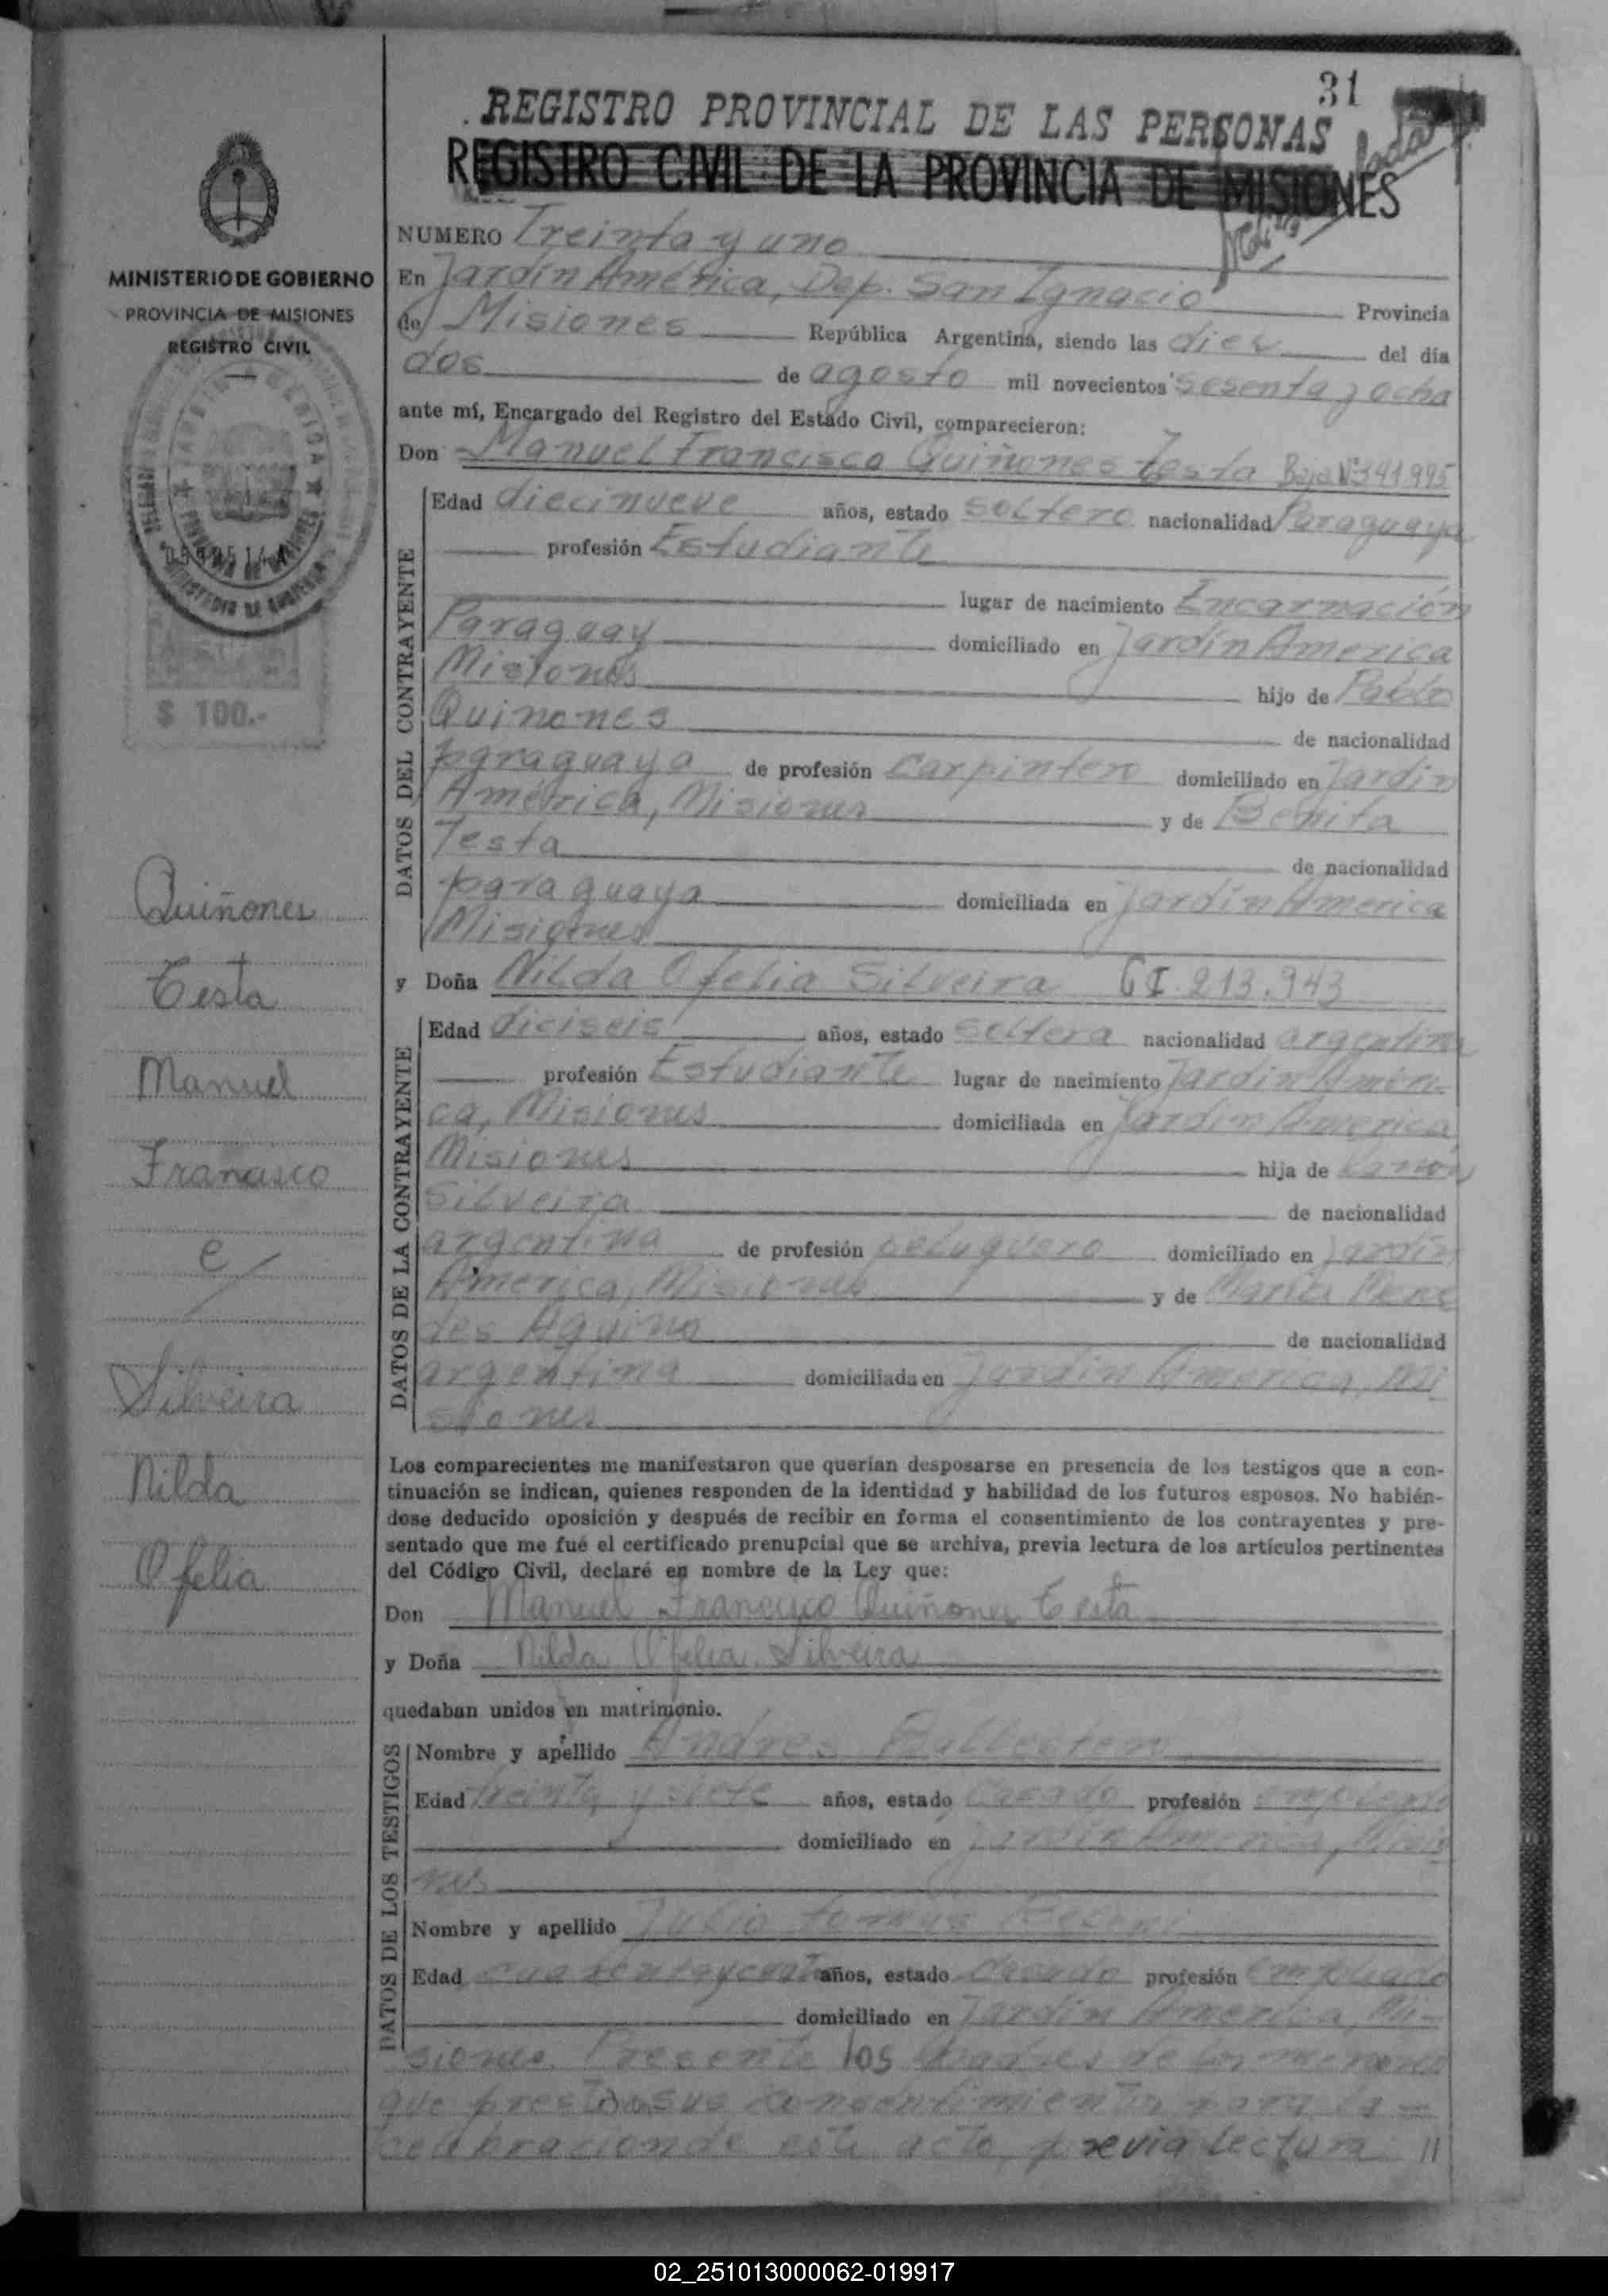 31
REGISTRO PROVINCIAL DE LAS PERSONAS
REGISTRO CIVIL DE LA PROVINCIA DE MISIONES
MINISTERIO DE GOBIERNO
PROVINCIA DE MISIONES
REGISTRO CIVIL
$ 100.-
Quiñones
Testa
Manuel
Francisco
e/
Silveira
Nilda
Ofelia
NUMERO Treinta y uno
En Jardín América, Dep. San Ignacio Provincia
de Misiones República Argentina, siendo las diez del día
dos de agosto mil novecientos sesenta y ocho
ante mí, Encargado del Registro del Estado Civil, comparecieron:
Don Manuel Francisco Quiñones Testa Baja Nº341.995
DATOS DEL CONTRAYENTE
Edad diecinueve años, estado soltero nacionalidad Paraguaya
profesión Estudiante
lugar de nacimiento Encarnación
Paraguay domiciliado en Jardín America
Misiones hijo de Pablo
Quinones de nacionalidad
paraguaya de profesión Carpintero domiciliado en Jardin
América, Misiones y de Benita
Testa de nacionalidad
paraguaya domiciliada en Jardín America
Misiones
y Doña Nilda Ofelia Silveira CI 213.943
DATOS DE LA CONTRAYENTE
Edad dieciseis años, estado soltera nacionalidad argentina
profesión Estudiante lugar de nacimiento Jardin Améri-
ca, Misiones domiciliada en Jardin America
Misiones hija de Ramón
Silveira de nacionalidad
argentina de profesión peluquero domiciliado en Jardín
America, Misiones y de Marita Mene
des Aquino de nacionalidad
argentina domiciliada en Jardin America, Mi
siones
Los comparecientes me manifestaron que querían desposarse en presencia de los testigos que a con-
tinuación se indican, quienes responden de la identidad y habilidad de los futuros esposos. No habién-
dose deducido oposición y después de recibir en forma el consentimiento de los contrayentes y pre-
sentado que me fué el certificado prenupcial que se archiva, previa lectura de los artículos pertinentes
del Código Civil, declaré en nombre de la Ley que:
Don Manuel Francisco Quiñones Testa
y Doña Nilda Ofelia Silveira
quedaban unidos en matrimonio.
DATOS DE LOS TESTIGOS
Nombre y apellido Andres Ballestero
Edad treinta y siete años, estado Casado profesión
domiciliado en Jardin America, Misio
nes
Nombre y apellido Julio
Edad años, estado Casado profesión Empleado
domiciliado en Jardin America, Mi-
siones. Presente los padres de los menores
que prestan sus consentimientos para la =
celebracion de este acto, previa lectura //
02_251013000062-019917